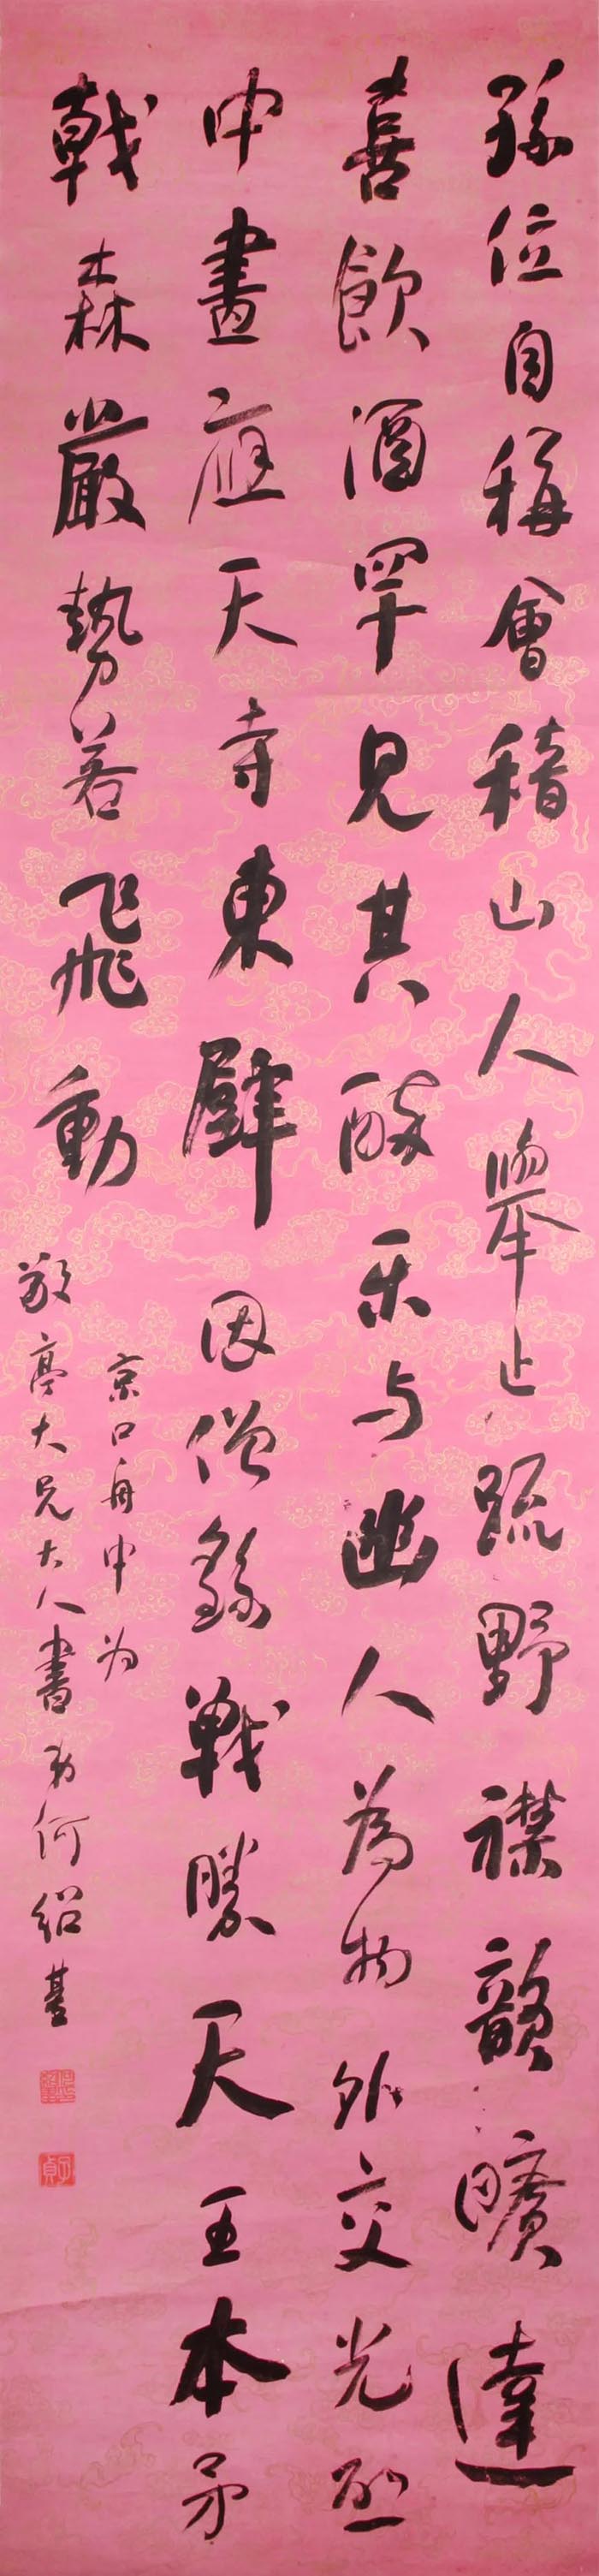 孫位自稱會稽山人舉止疏野襟韻曠達
喜飲酒罕見其醉樂与幽人為物外交光啟
中畫應天寺東壁因僧繇戰勝天王本矛
戟森嚴勢若飛動
京口舟中为
敬亭大兄大人書 弟何紹基
子貞